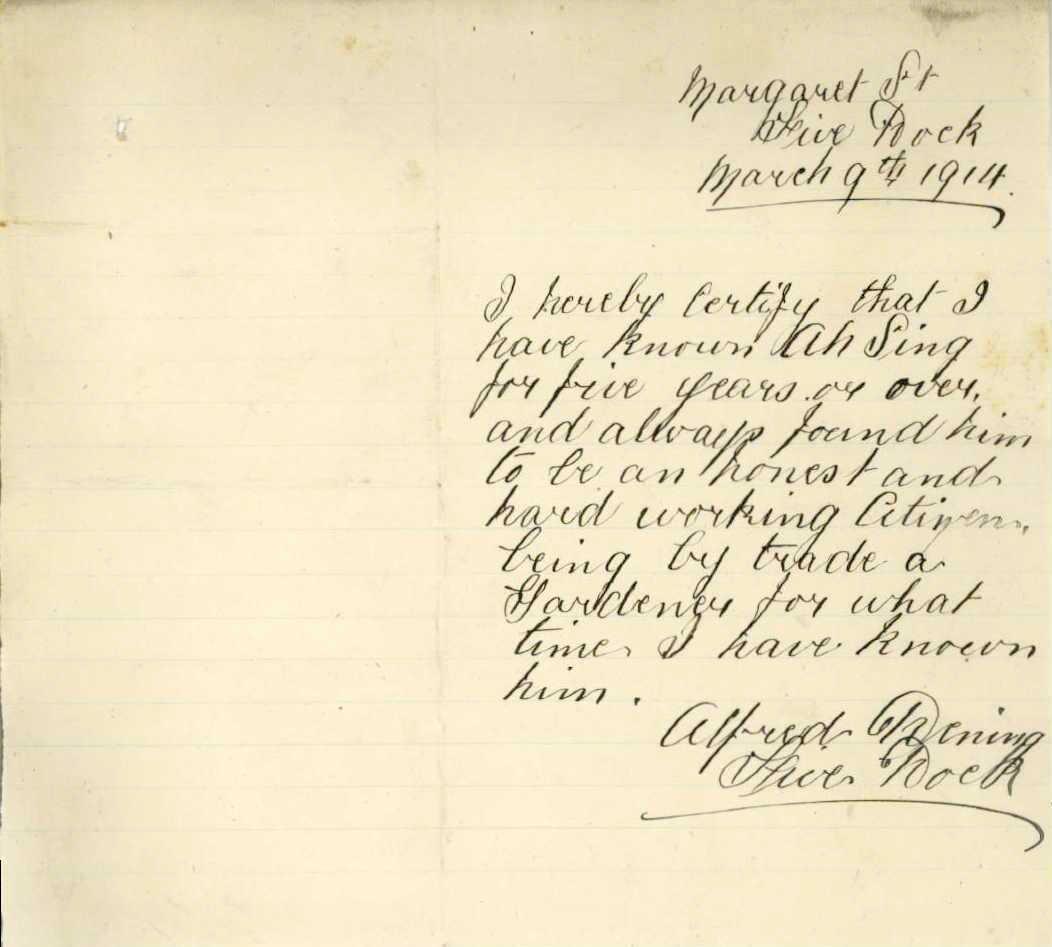 Margaret St
Five Dock
March 9th 1914.
I hereby Certify that I
have known Ah Sing
for five years or over,
and always found him
to be an honest and
hard working Citizen,
being by trade a
Gardener for what
time I have known
him.
Alfred Dening
Five Dock